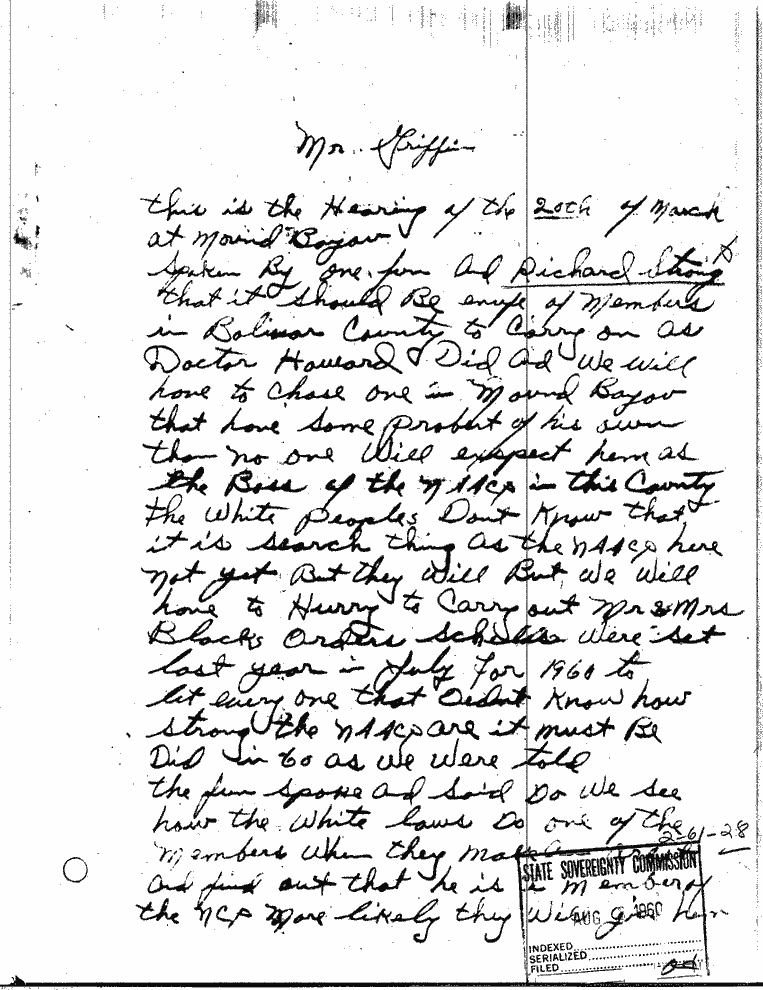 Mr. Griffin
this is the Hearing of the 20th of March
at Mound Bayov
Spoken By one. fun and Richard Strong X
that it should Be enufe of Members
in Bolivar County to Carry on as
Doctor Howard Did And We Will
have to chose one in Mound Bayov
that have some probert of his own
than no one Will exspect hem as
the Boss of the NAACP in this County
the White peoples Dont Know that
it is search thing As the NAACP here
Not yet But they Will But We Will
have to Hurry to Carry out Mr & Mrs
Blacks Orders Were set
last year in July For 1960 to
let every one that Didnt Know how
strong the NAACP are it must Be
Did in 60 as We Were told
the fun spoke and said Do We see
how the White laws Do one of the
Members When they make an
And find out that he is a Member of
the NCP More likely they Will give hem
2-61-28
STATE SOVEREIGNTY COMMISSION
AUG 1960
INDEXED
SERIALIZED
FILED